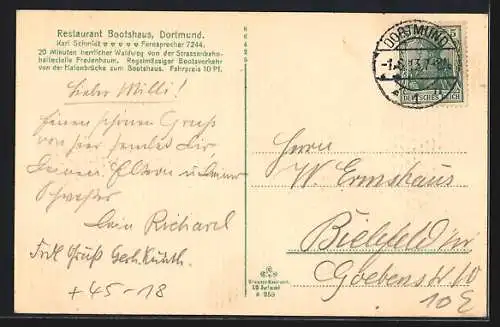 Restaurant Bootshaus, Dortmund.
Karl Schmidt Fernsprecher 7244.
20 Minuten herrlicher Waldweg von der Strassenbahn-
haltestelle Fredenbaum. Regelmässiger Bootsverkehr
von der Hafenbrücke zum Bootshaus. Fahrpreis 10 Pf.
DORTMUND
5
DEUTSCHES REICH
Lieber Willi!
Einen schönen Gruß
von hier sendet Dir
Deinen Eltern u. Deiner
Schwester
Dein Richard
Frdl Gruß Gerh.
+ 45-18
Herrn
W. Ermshaus
Bielefeld
Goebenstr.